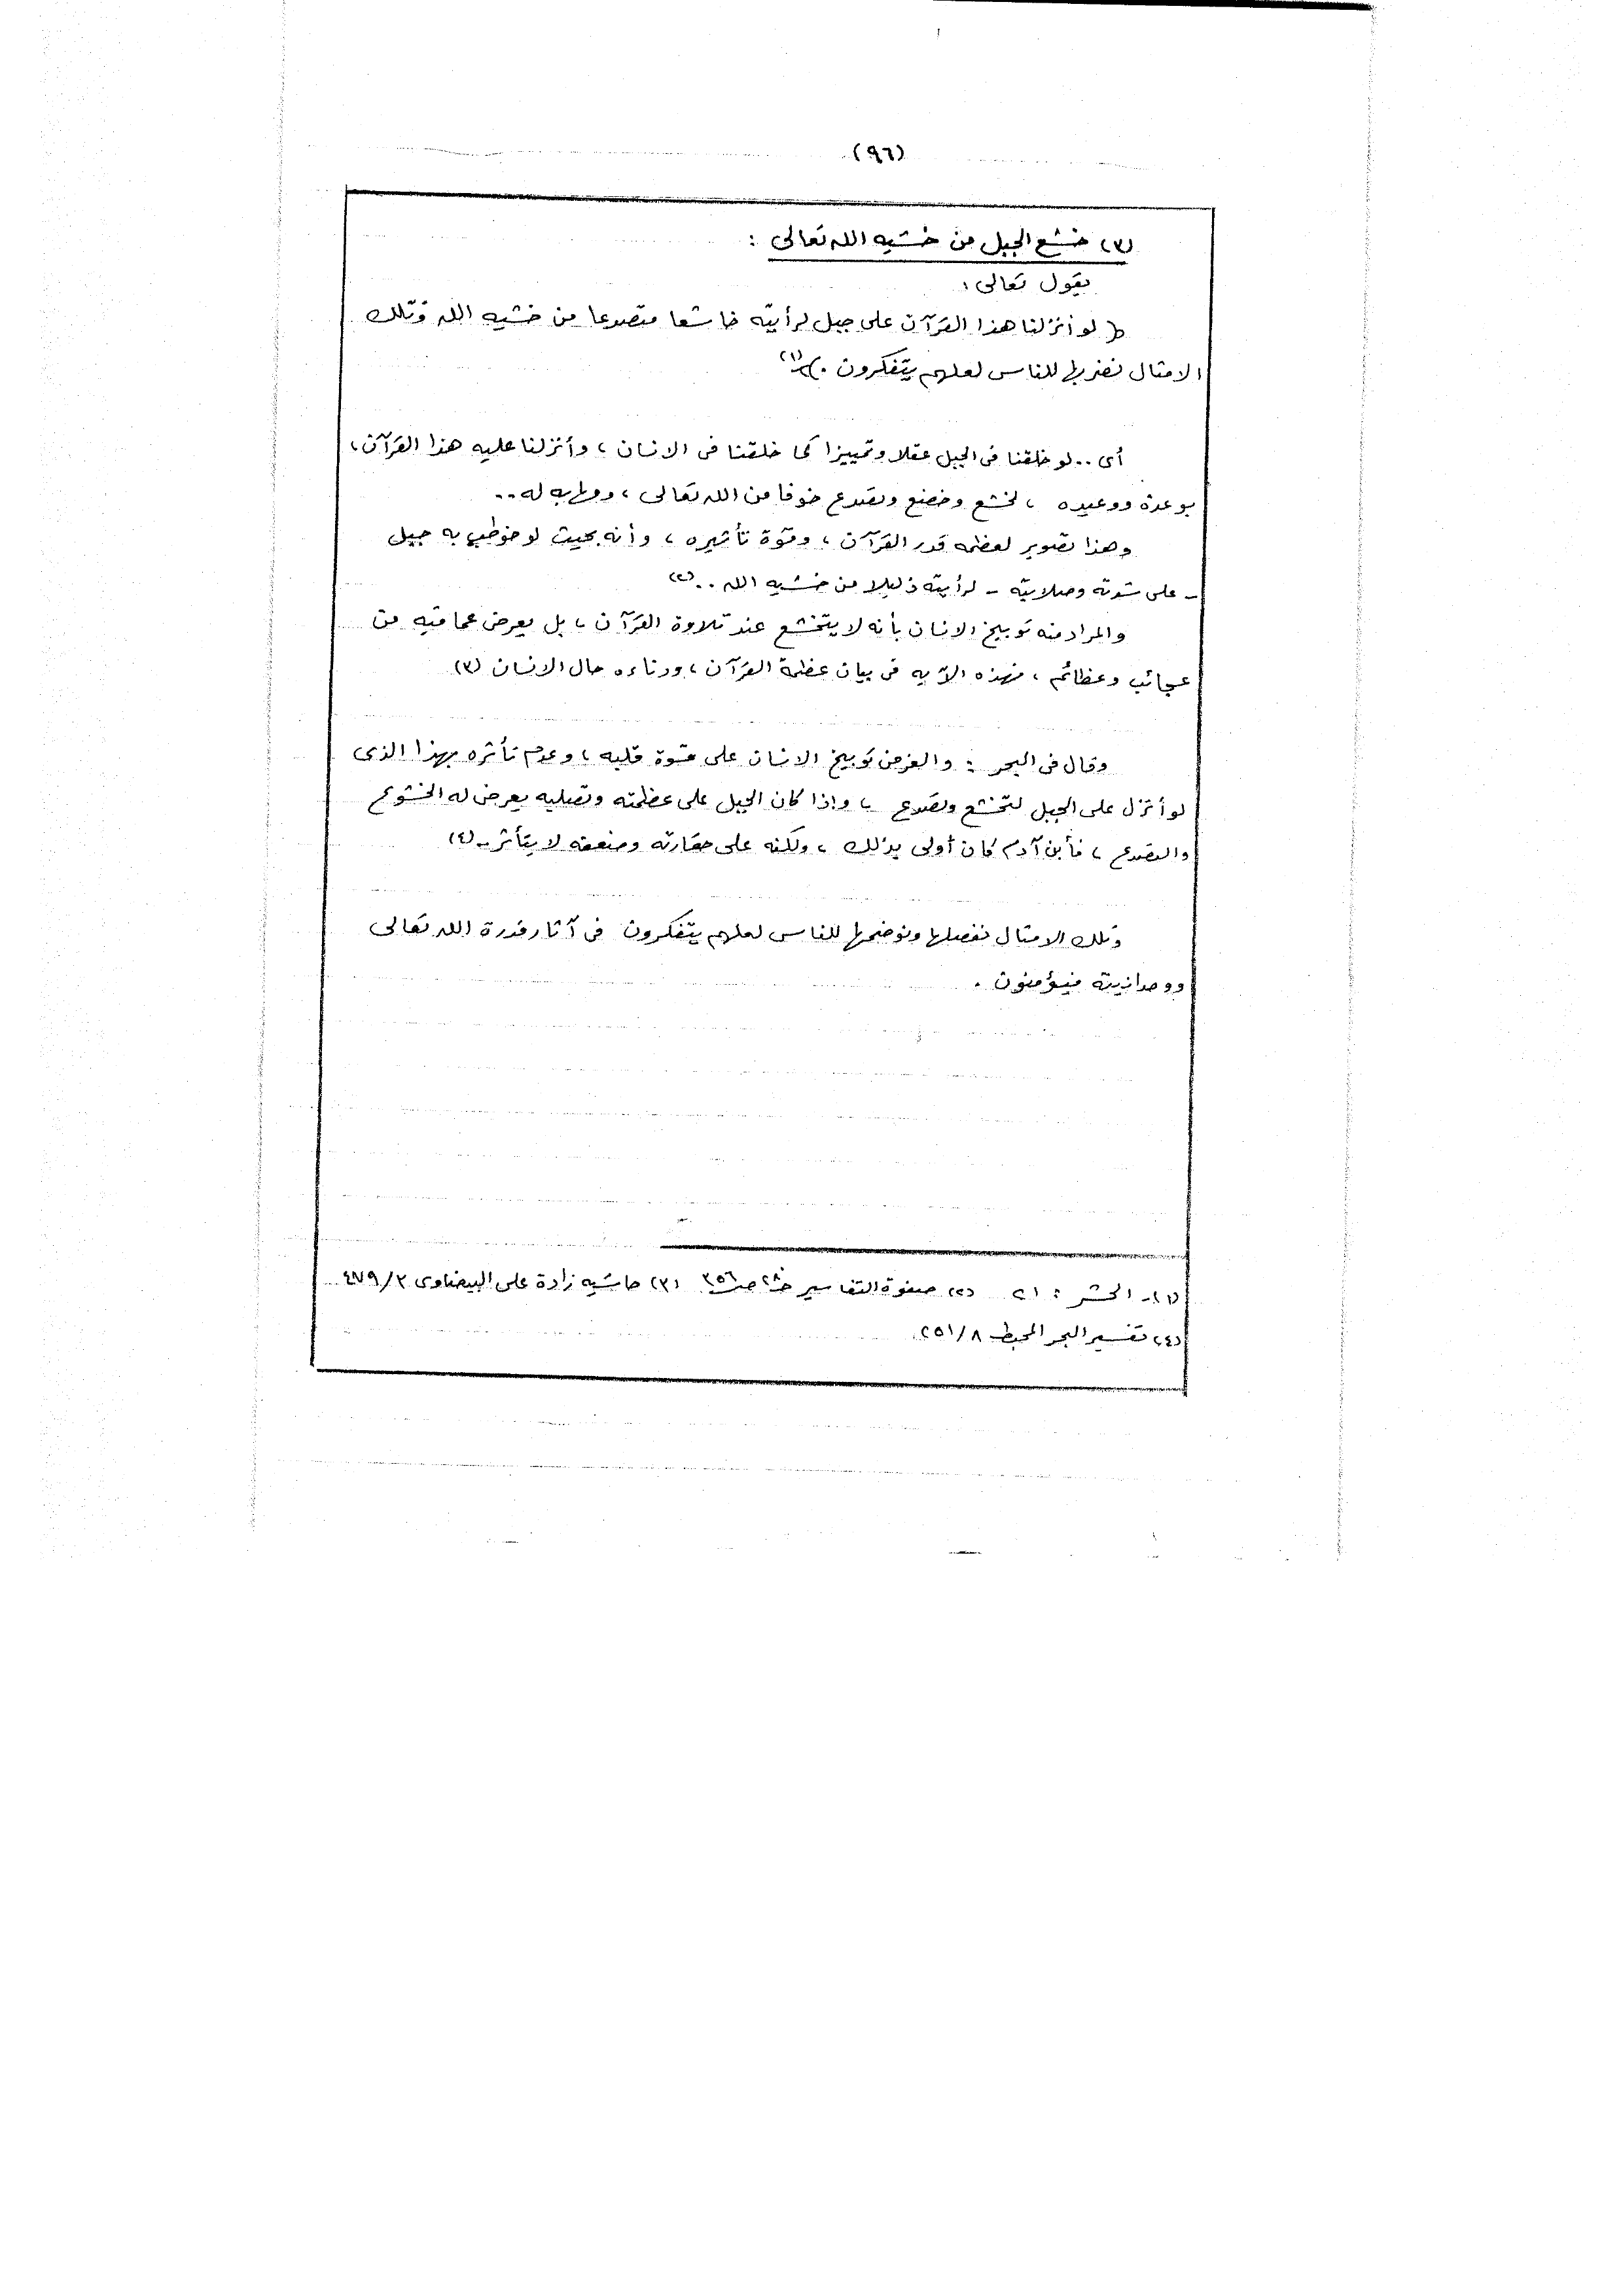 (٩٦)
(٣) خشع الجبل من خشيه الله تعالى :
يقول تعالى :
( لو أنزلنا هذا القرآن على جبل لرأيته خاشعا متصدعا من خشيه الله وتلك
الامثال نضربها للناس لعلهم يتفكرون . ) (١)
أى .. لو خلقنا فى الجبل عقلا وتمييزا كما خلقنا فى الانسان ، وأنزلنا عليه هذا القرآن ،
بوعدة ووعيده ، لخشع وخضع وتصدع خوفا من الله تعالى ، ومهابه له ..
وهذا تصوير لعظمه قدر القرآن ، وقوة تأثيره ، وأنه بحيث لو خوطب به جبل
- على شدته وصلابته - لرأيته ذليلا من خشيه الله .. (٢)
والمراد منه توبيخ الانسان بأنه لا يتخشع عند تلاوة القرآن ، بل يعرض عما فيه من
عجائب وعظائم ، فهذه الآيه فى بيان عظمة القرآن ، ودناءه حال الانسان (٣)
وقال فى البحر : والغرض توبيخ الانسان على قسوة قلبه ، وعدم تأثره بهذا الذى
لو أنزل على الجبل لتخشع وتصدع ، واذا كان الجبل على عظمته وتصلبه يعرض له الخشوع
والتصدع ، فأبن آدم كان أولى بذلك ، ولكنه على حقارته وضعفه لا يتأثر .. (٤)
وتلك الامثال نفصلها ونوضحها للناس لعلهم يتفكرون فى آثار قدرة الله تعالى
ووحدانيته فيؤمنون .
(١) - الحشر : ٢١ (٢) صفوة التفاسير ح٢٨ ص٣٥٦ (٣) حاشيه زادة على البيضاوى ٤٧٩/٣
(٤) تفسير البحر المحيط ٢٥١/٨